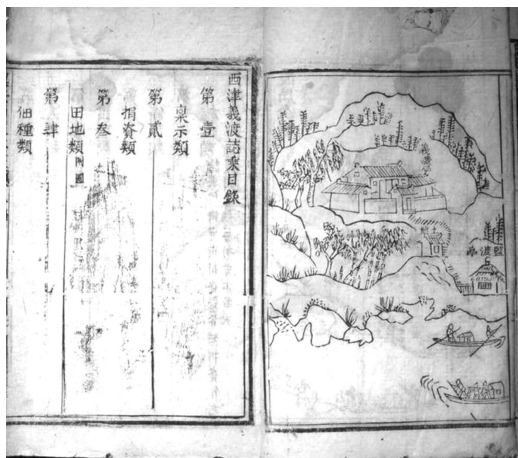 西津義渡誌乘目錄
第壹
稟示類
第貳
捐資類
第叁
田地類附圖
第肆
佃種類